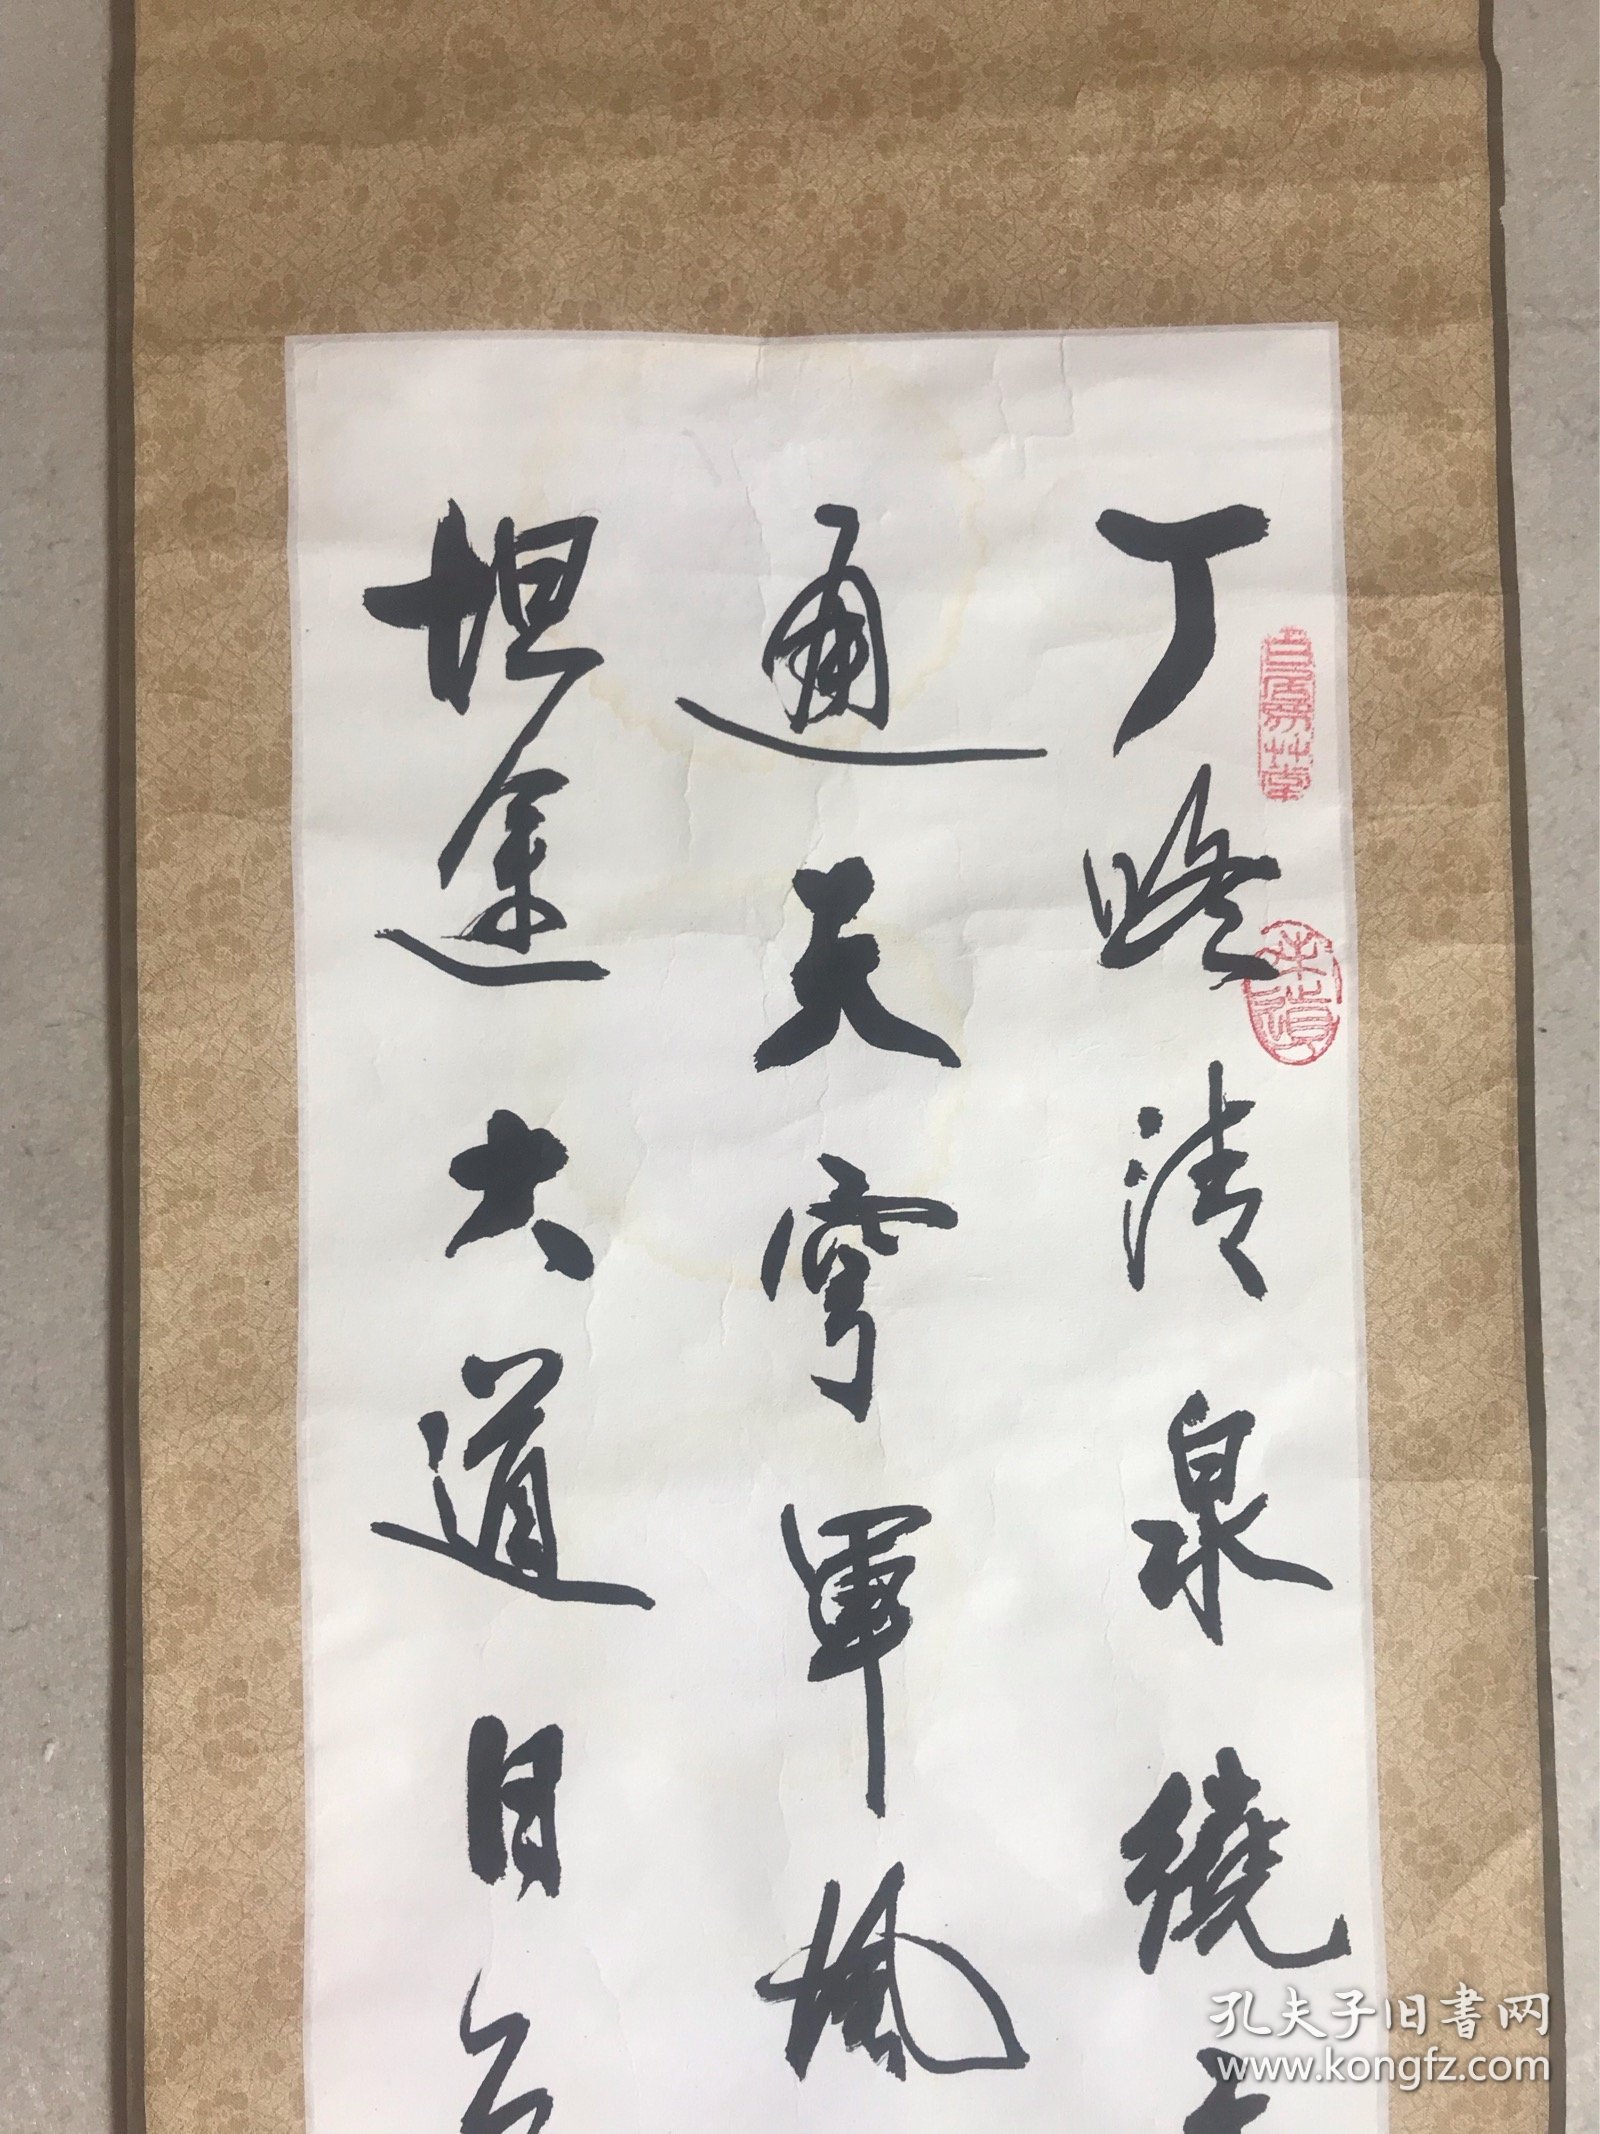 丁清泉绕
通天穹軍枫
坦途大道目
孔夫子旧書网
www.kongfz.com